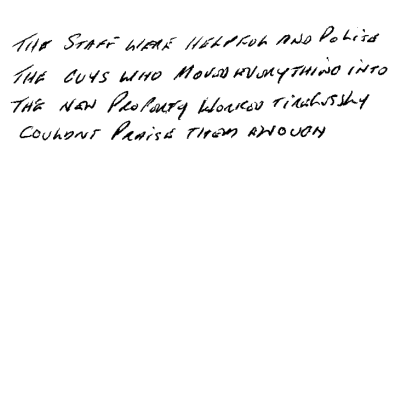 THE STAFF WERE HELPFUL AND POLITE
THE GUYS WHO MOVED EVERYTHING INTO
THE NEW PROPERTY WORKED TIRELESSLY
COULDNT PRAISE THEM ENOUGH